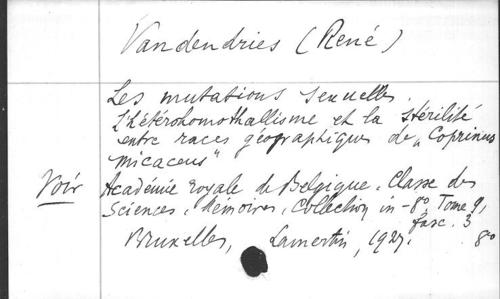 Vandendries (René)
Les mutations sexuelles.
L'hétérohomothallisme et la stérilité
entre races géographiques de „Coprinus
micaceus"
Voir Académie royale de Belgique. Classe des
Sciences. Mémoires. Collection in-8º. Tome 9,
fasc. 3
Bruxelles, Lamertin, 1927. 8º